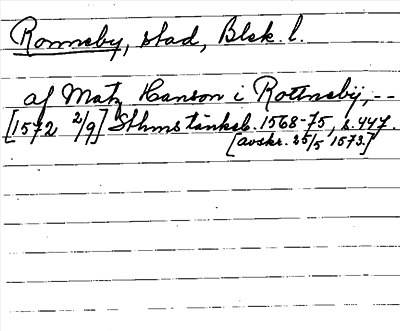 Ronneby, stad, Blek. l.
af Matz Hanson i Rottneby, --
[1572 2/9] Sthms tänkeb. 1568-75, s. 447.
[avskr. 25/5 1573.]